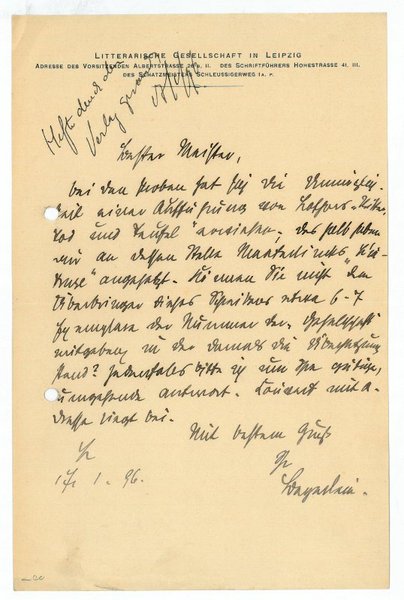 LITTERARISCHE GESELLSCHAFT IN LEIPZIG
ADRESSE DES VORSITZENDEN ALBERTSTRASSE 26 B. II. DES SCHRIFTFÜHRERS HOHESTRASSE 41, III.
DES SCHATZMEISTERS SCHLEUSSIGERWEG 1 A. P.
Hefte durch den
Verlag
Bester Meister,
bei den Proben hat sich die Unmöglich-
keit einer Aufführung von "Ritter,
Tod und Teufel" erwiesen; deshalb haben
wir an dessen Stelle Maeterlincks
angesetzt. Können Sie nicht dem
Überbringer dieses Schreibens etwa 6-7
Exemplare der Nummer der "Gesellschaft"
mitgeben, in der damals die Übersetzung
stand? Jedenfalls bitte ich um Ihre gütige,
umgehende Antwort. Couvert mit A-
dresse liegt bei.
Mit bestem Gruß
Ihr
17/1. 96.